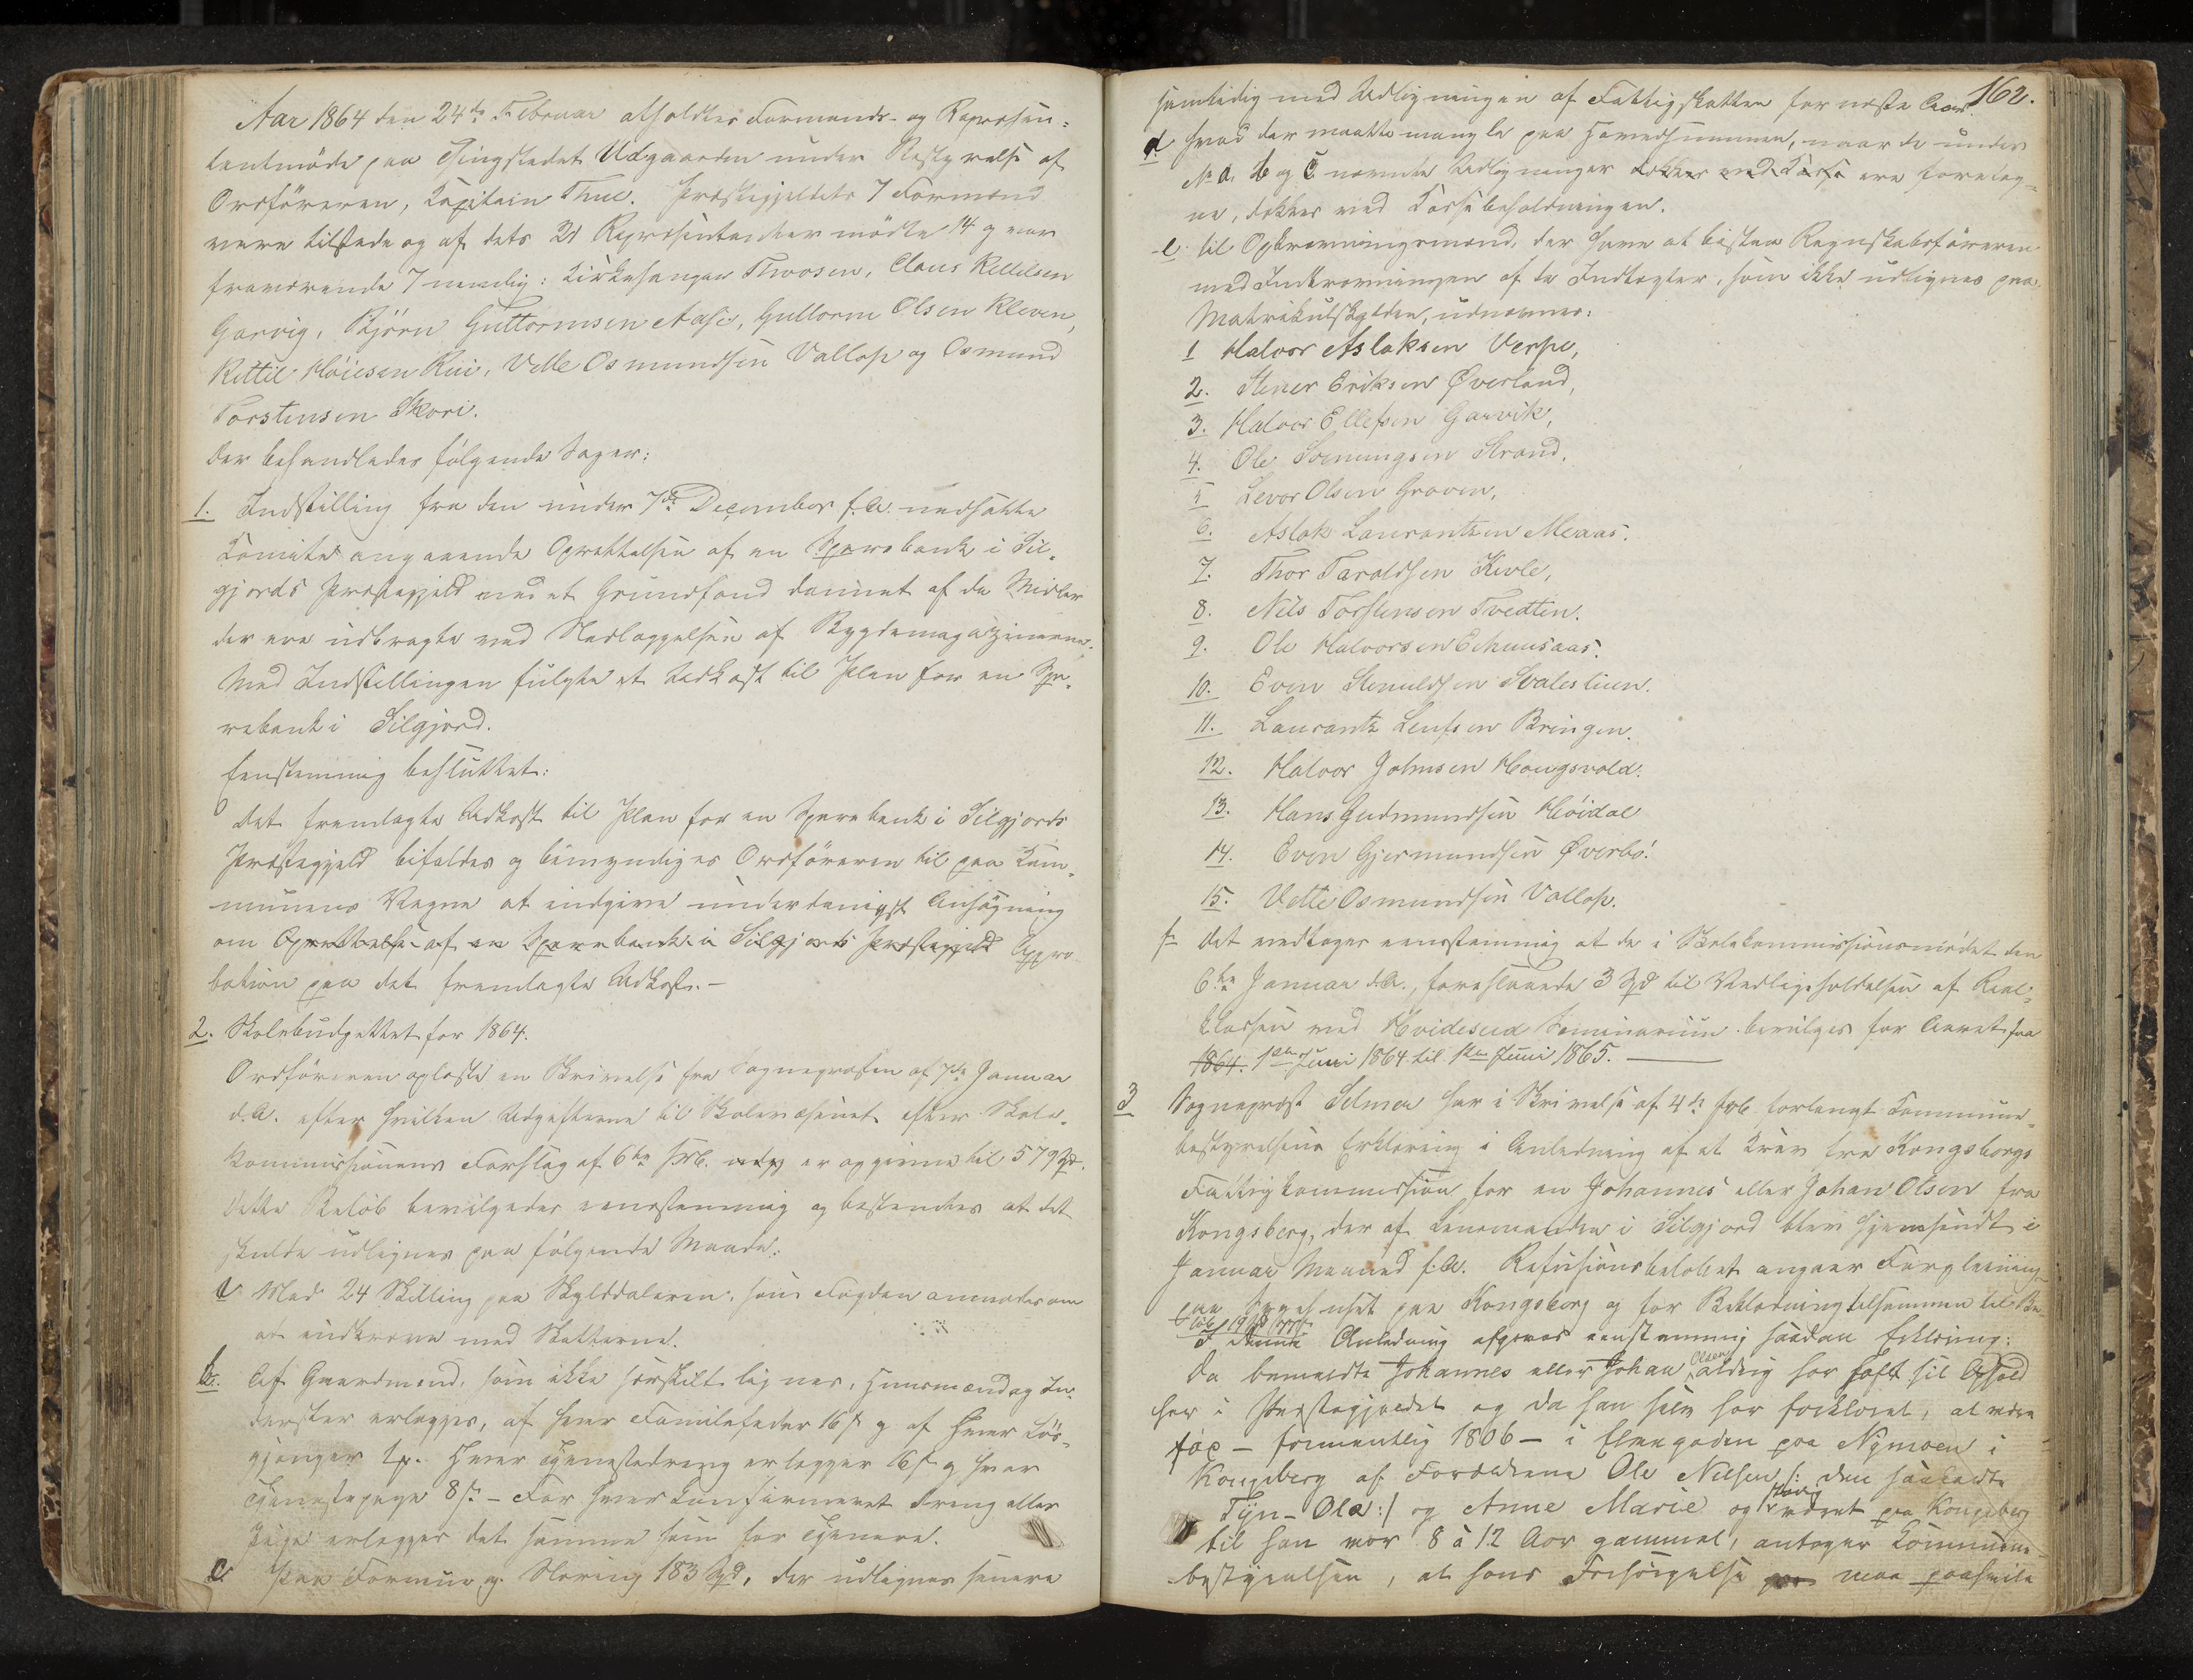 Aar 1864 den 24de Februar afholdtes Formands- og Repræsen-
tantmöde paa Thingstedet Udgaarden under Bestyrelse af
Ordföreren, Kapitain Thue. Præstegjeldets 7 Formænd
vare tilstede og af dets 21 Repræsentanter mödte 14 og var
fraværende 7 nemlig: Kirkesanger Thvosen, Claus Kittilsen
Garvig, Björn Guttormsen Aase, Guttorm Olsen Kleven,
Kittil Höiesen Rui, Vetle Osmundsen Vallop og Osmund
Torstensen Skori.
Der behandledes fölgende Sager:
1. Indstilling fra den under 7de December f.A. nedsatte
Komite angaaende Oprettelsen af en Sparebank i Sil-
gjords Præstegjeld med et Grundfond dannet af de Midler
der ere udbragte ved Nedlæggelsen af Bygdemagazinerne.
Med Indstillingen fulgte et Udkast til Plan for en Spa-
rebank i Silgjord.
Eenstemmig besluttet:
Det fremlagte Udkast til Plan for en Sparebank i Silgjords
Præstegjeld bifaldes og bemyndiges Ordföreren til paa Kom-
munens Vegne at indgive underdanigst Ansögning
om Oprettelse af en Sparebank i Silgjords Præstegjeld Appro
bation paa det fremlagte Udkast.-
2. Skolebudgettet for 1864.
Ordföreren oplæste en Skrivelse fra Sognepræsten af 7de Januar
d.A. efter hvilken Udgifterne til Skolevæsenet efter Skole-
kommissionens Forslag af 6te er opgivne til 579 Spd.
Dette Belöb bevilgedes eenstemmig og bestemtes at det
skulde udlignes paa fölgende Maade:
a Med 24 Skilling paa Skylddaleren, som Fogden anmodes om
at indkræve med Skatterne.
b. Af Gaardmænd, som ikke særskilt lignes, Huusmænd og In-
derster erlægges, af hver Familiefader 16 s og af hver Lös-
gjænger Hver Tjenestedreng erlægger 16 s og hver
Tjenestepige 8 s. - For hver konfirmeret Dreng eller
Pige erlægges det samme som for Tjenere.
c. Paa Formue og Næring 183 Spd, der udlignes senere
162.
samtidig med Udligningen af Fattigskatten for næste Aar.
d. Hvad der maatte mangle paa Hovedsummen, naar de under
No a, b og c nævnte Udligninger dækkes ved Kasse ere foretag-
ne, dækkes ved Kassebeholdningen.
e. til Opkrævningsmænd, der have at bistaa Regnskabsföreren
med Indkrævningen af de Indtægter, som ikke udlignes paa
Matrikulskylden, udnævnes:
1 Halvor Aslaksen Verpe,
2. Stener Eriksen Øverland,
3. Halvor Ellefsen Garvik,
4. Ole Sveinungsen Strand.
5 Levor Olsen Groven,
6. Aslak Laurantsen Meaas.
7. Thor Taraldsen Kivle,
8. Nils Torstensen Tvedten.
9. Ole Halvorsen Echunsaas.
10. Even Stenuldsen Svalestuen.
11. Laurants Leufsen Bringen.
12. Halvor Johnsen Haugsvold.
13. Hans Gudmundsen Höidal
14. Even Gjermundsen Øverbö.
15. Vetle Osmundsen Vallop.
f Det vedtages eenstemmig at de i Skolekommissionsmödet den
6te Januar d.A., foreslaaede 3 Spd til Vedligeholdelsen af Real-
klassen ved Hvideseid Seminarium bevilges for Aaret fra
1864. 1ste Juni 1864 til 1ste Juni 1865. —
3 Sognepræst Selmer har i Skrivelse af 4de Feb. forlangt Kommune-
bestyrelsens Erklæring i Anledning af et Krav fra Kongsbergs
Fattigkommission for en Johannes eller Johan Olsen fra
Kongsberg, der af Lensmanden i Silgjord blev hjemsendt i
Januar Maaned f.A. Refusionsbelöbet angaar Forpleining
paa Sygehuset paa Kongsberg og for Beklædning tilsammen til Be-
I denne Anledning afgaves eenstemmig saadan Erklæring:
Da bemeldte Johannes eller Johan Olsen aldrig har havt sit Ophold
her i Præstegjeldet og da han selv har forklaret, at være
föd - formentlig 1806 - i Elvegaden paa Nymoen i
Kongsberg af Forældrene Ole Nilsen /: den saakaldte
Tyn-Ola:/ og Anne Marie og stadig været paa Kongsberg
til han var 8 à 12 Aar gammel, antager Kommune-
bestyrelsen, at hans Forsörgelse maa paahvile